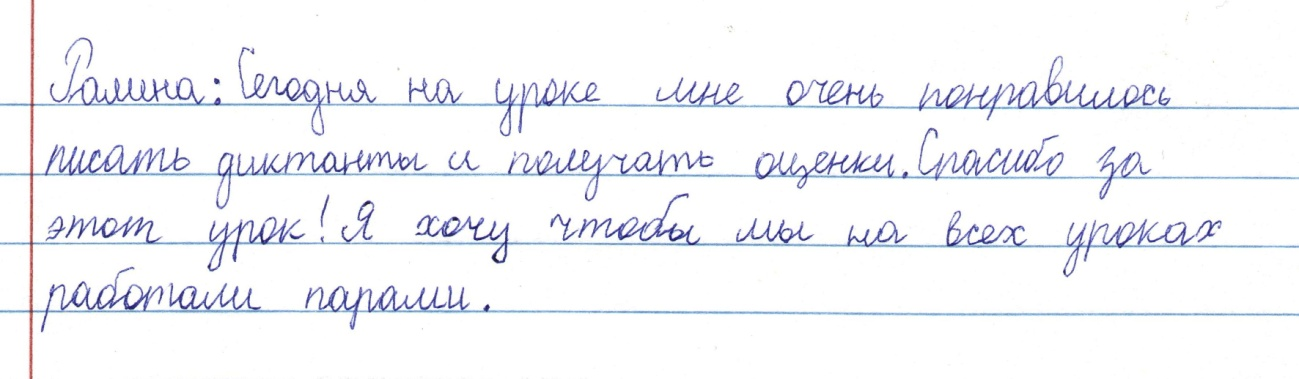 Ралина: Сегодня на уроке мне очень понравилось
писать диктанты и получать оценки. Спасибо за
этот урок! Я хочу чтобы мы на всех уроках
работали парами.